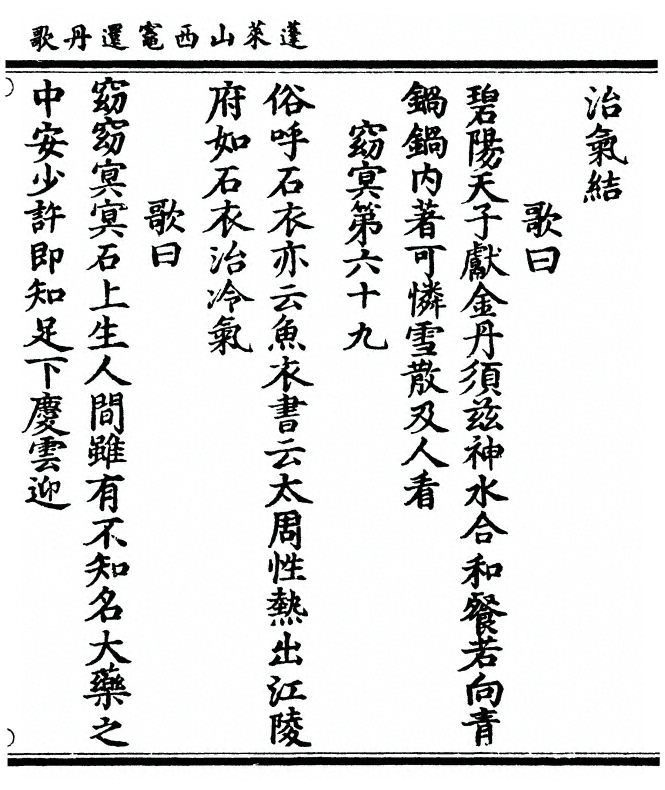 蓬萊山西竈還丹歌
治氣結
歌曰
碧陽天子獻金丹須茲神水合和餐若向青
鍋鍋內著可憐雪散及人看
窈冥第六十九
俗呼石衣亦云魚衣書云太周性熱出江陵
府如石衣治冷氣
歌曰
窈窈冥冥石上生人間雖有不知名大藥之
中安少許即知足下慶雲迎